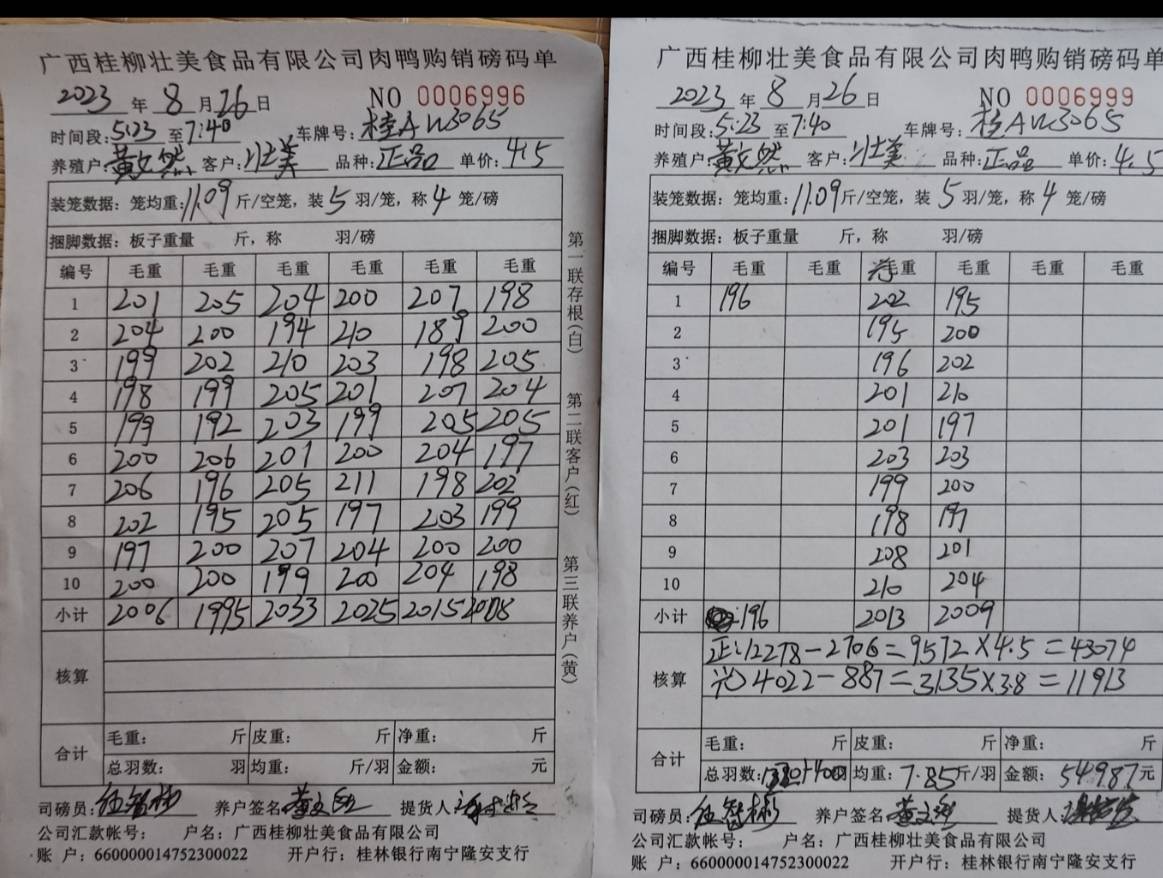 广西桂柳壮美食品有限公司肉鸭购销磅码单
2023 年 8 月 26 日 NO 0006996
时间段:5:23 至 7:40 车牌号:桂AW3065
养殖户:黄文然 客户:壮美 品种:正品 单价:4.5
装笼数据:笼均重:11.09斤/空笼，装 5 羽/笼，称 4 笼/磅
捆脚数据:板子重量 斤，称 羽/磅
编号 毛重 毛重 毛重 毛重 毛重 毛重
1 201 205 204 200 207 198
2 204 200 194 210 189 200
3 199 202 210 203 198 205
4 198 199 205 201 207 204
5 199 192 203 199 205 205
6 200 206 201 200 204 197
7 206 196 205 211 198 202
8 202 195 205 197 203 199
9 197 200 207 204 200 200
10 200 200 199 200 204 198
小计 2006 1995 2033 2025 2015 2008
核算
合计 毛重: 斤 皮重: 斤 净重: 斤
总羽数: 羽 均重: 斤/羽 金额: 元
司磅员: 养户签名 提货人
公司汇款帐号: 户名:广西桂柳壮美食品有限公司
账 户:660000014752300022 开户行:桂林银行南宁隆安支行
第一联存根(白) 第二联客户(红) 第三联养户(黄)
广西桂柳壮美食品有限公司肉鸭购销磅码单
2023 年 8 月 26 日 NO 0006999
时间段:5:23 至 7:40 车牌号:桂AW3065
养殖户:黄文然 客户:壮美 品种:正品 单价:4.5
装笼数据:笼均重:11.09斤/空笼，装 5 羽/笼，称 4 笼/磅
捆脚数据:板子重量 斤，称 羽/磅
编号 毛重 毛重 毛重 毛重 毛重 毛重
1 196 202 195
2 195 200
3 196 202
4 201 210
5 201 197
6 203 203
7 199 200
8 198 197
9 208 201
10 210 204
小计 196 2013 2009
核算 正:12278-2706=9572×4.5=43074
4022-887=3135×3.8=11913
合计 毛重: 斤 皮重: 斤 净重: 斤
总羽数: 均重:7.85斤/羽 金额:54987元
司磅员: 养户签名 提货人
公司汇款帐号: 户名:广西桂柳壮美食品有限公司
账 户:660000014752300022 开户行:桂林银行南宁隆安支行